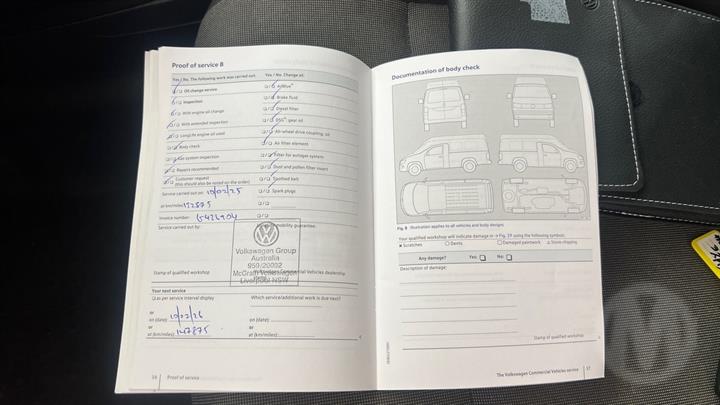 Proof of service B
Yes / No. The following work was carried out:
Oil change service
Inspection
With engine oil change
With extended inspection
Longlife engine oil used
Body check
Gas system inspection
Repairs recommended
Customer request
(this should also be noted on the order)
Service carried out on: 10/02/25
at km/miles: 132875
Invoice number:
Service carried out by:
Stamp of qualified workshop
Yes / No. Change of:
AdBlue®
Brake fluid
Diesel filter
DSG® gear oil
All-wheel drive coupling oil
Air filter element
Filter for autogas system
Dust and pollen filter insert
Toothed belt
Spark plugs
mobility guarantee:
Volkswagen Group
Australia
959/20002
McGrath Volkswagen
Liverpool NSW
Commercial Vehicles dealership
Your next service
as per service interval display
or
on (date): 10/02/26
or
at (km/miles): 147875
Which service/additional work is due next?
on (date):
or
at (km/miles):
56 Proof of service
Documentation of body check
Fig. 9 Illustration applies to all vehicles and body designs
Your qualified workshop will indicate damage in → Fig. 29 using the following symbols:
Scratches Dents Damaged paintwork Stone chipping
Any damage? Yes: No:
Description of damage:
Stamp of qualified workshop
The Volkswagen Commercial Vehicles service 57